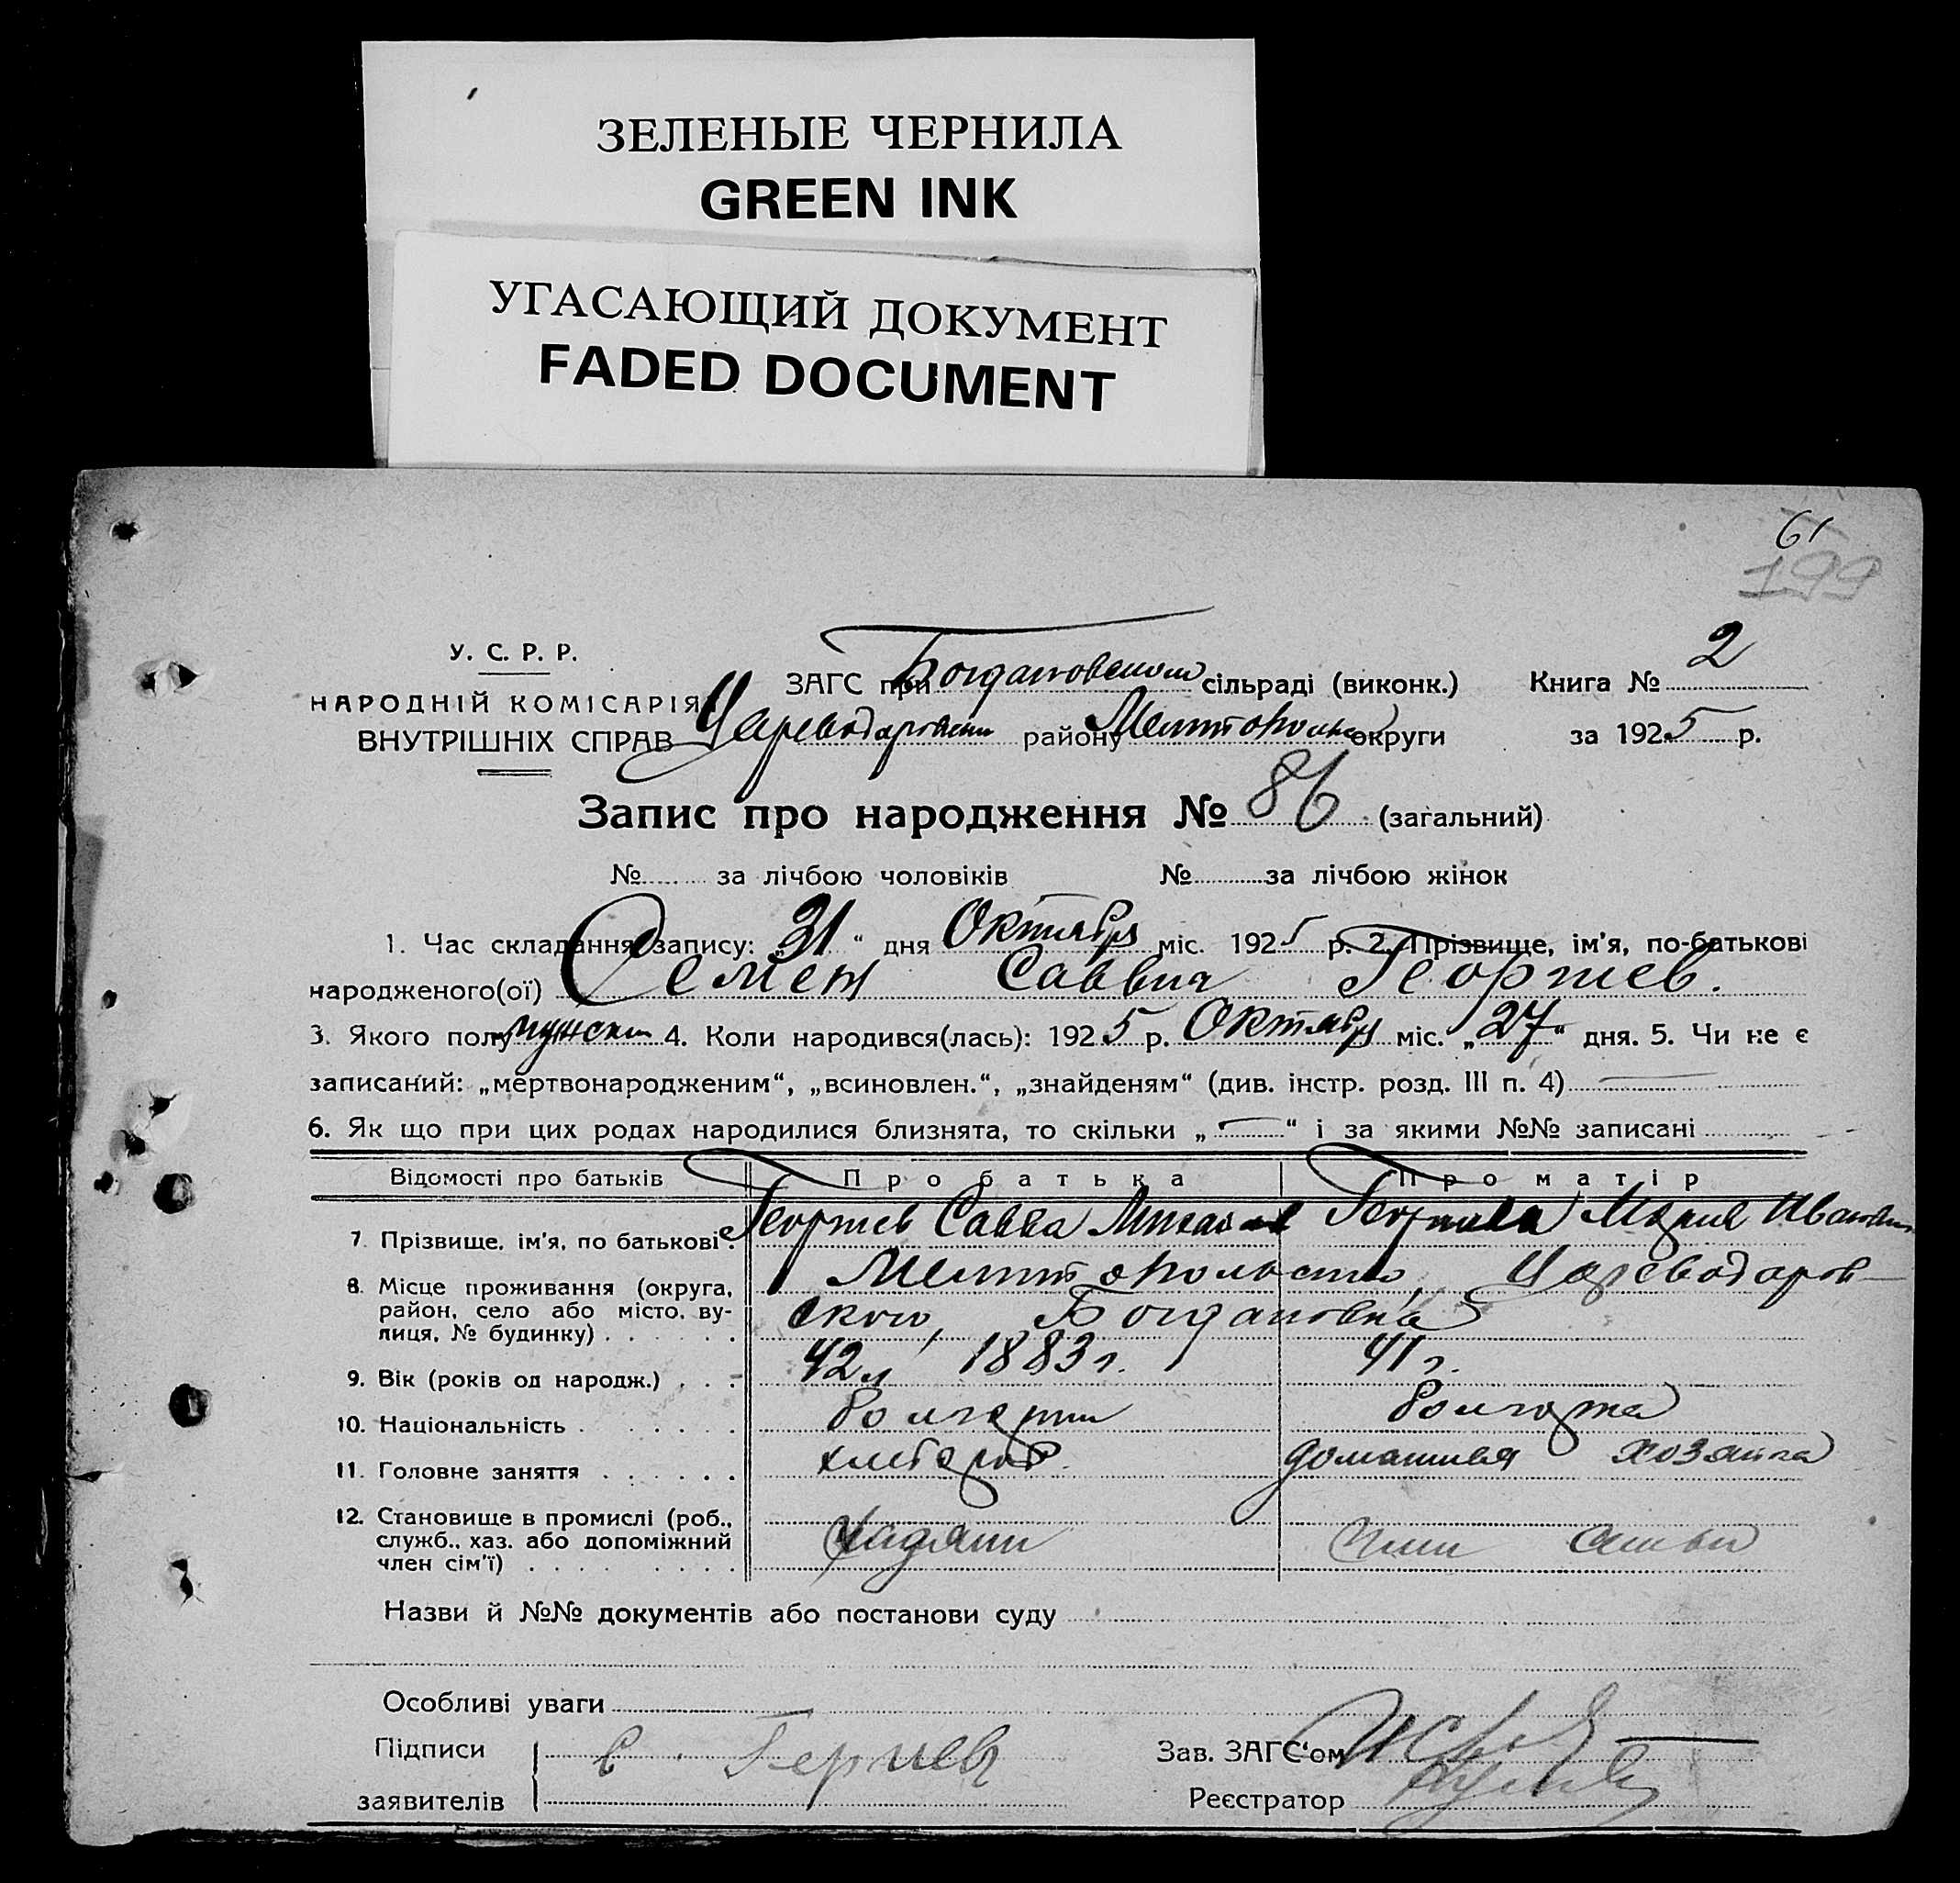 ЗЕЛЕНЫЕ ЧЕРНИЛА
GREEN INK
УГАСАЮЩИЙ ДОКУМЕНТ
FADED DOCUMENT
61
199
У. С. Р. Р.
НАРОДНІЙ КОМІСАРІЯ
ВНУТРІШНІХ СПРАВ
ЗАГС при Богдановском сільраді (виконк.) Книга № 2
Цареводаровск району Мелитопольс округи за 1925 р.
Запис про народження № 86 (загальний)
№ за лічбою чоловіків № за лічбою жінок
1. Час складання запису: „31“ дня Октября міс. 1925 р. 2. Прізвище, ім'я, по-батькові
народженого(ої) Семен Саввич Георгиев.
3. Якого полу мужск 4. Коли народився(лась): 1925 р. Октября міс. „27“ дня. 5. Чи не є
записаний: „мертвонародженим“, „всиновлен.“, „знайденям“ (див. інстр. розд. III п. 4) —
6. Як що при цих родах народилися близнята, то скільки „—“ і за якими №№ записані
Відомості про батьків Про батька Про матір
7. Прізвище, ім'я, по батькові. Георгиев Савва Георгиева Мария Иванов
8. Місце проживання (округа, район, село або місто, вулиця, № будинку) Мелитопольского, Цареводаров-
ского, Богдановка
9. Вік (років од народж.) 42 л 1883 г. 41 г.
10. Національність болгарин болгарка
11. Головне заняття хлебороб. домашняя хозяйка
12. Становище в промислі (роб., служб., хаз. або допоміжний член сім'ї) хазяин член семьи
Назви й №№ документів або постанови суду
Особливі уваги
Підписи заявителів С. Гергиев
Зав. ЗАГС'ом
Реєстратор